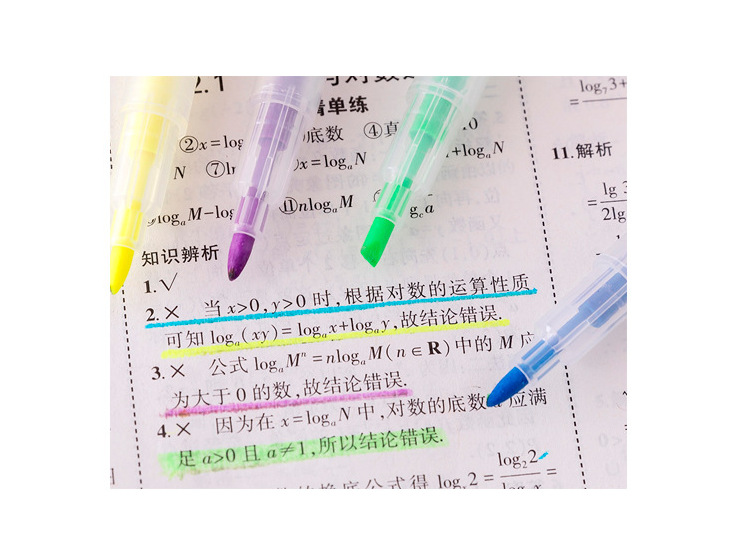 2.1 与对数
清单练
②x=log 底数 ④真 0
N ⑦ln x=logₐN +logₐN
logₐM-log ⑪nlogₐM a
知识辨析
1.√
2.× 当x>0,y>0时,根据对数的运算性质
可知logₐ(xy)=logₐx+logₐy,故结论错误.
3.× 公式logₐMⁿ=nlogₐM(n∈R)中的M应
为大于0的数,故结论错误.
4.× 因为在x=logₐN中,对数的底数a应满
足a>0且a≠1,所以结论错误.
换底公式得log 2=log₂2/log₂x=
log₇3+
=
11.解析
=lg 3/2lg